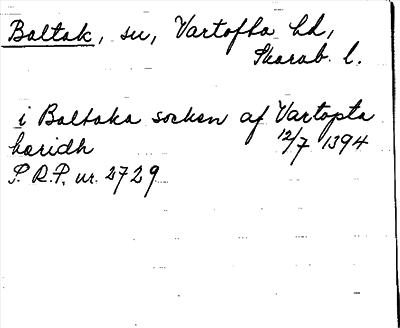 Baltak, sn, Vartofta hd,
Skarab. l.
i Baltaka socken af Vartopta
hæridh 12/7 1394
S.R.P. nr. 2729